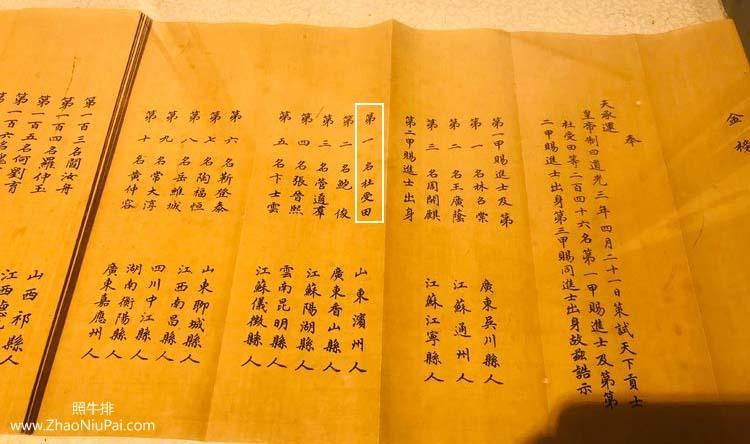 金榜
奉
天承運
皇帝制曰道光三年四月二十一日策試天下貢士
杜受田等二百四十六名第一甲賜進士及第第
二甲賜進士出身第三甲賜同進士出身故茲誥示
第一甲賜進士及第
第一名林召棠 廣東吳川縣人
第二名王廣蔭 江蘇通州人
第三名周開麒 江蘇江寧縣人
第二甲賜進士出身
第一名杜受田 山東濱州人
第二名鮑俊 廣東香山縣人
第三名管遹羣 江蘇陽湖縣人
第四名張晉熙 雲南昆明縣人
第五名卞士雲 江蘇儀徵縣人
第六名靳登泰 山東聊城縣人
第七名陶福恒 江西南昌縣人
第八名岳維城 四川中江縣人
第九名常大淳 湖南衡陽縣人
第十名黃仲容 廣東嘉應州人
第一百三名閻汝舟 山西祁縣人
第一百四名羅仲玉 江西德
第一百五名何劉育
第一百六名
照牛排
www.ZhaoNiuPai.com